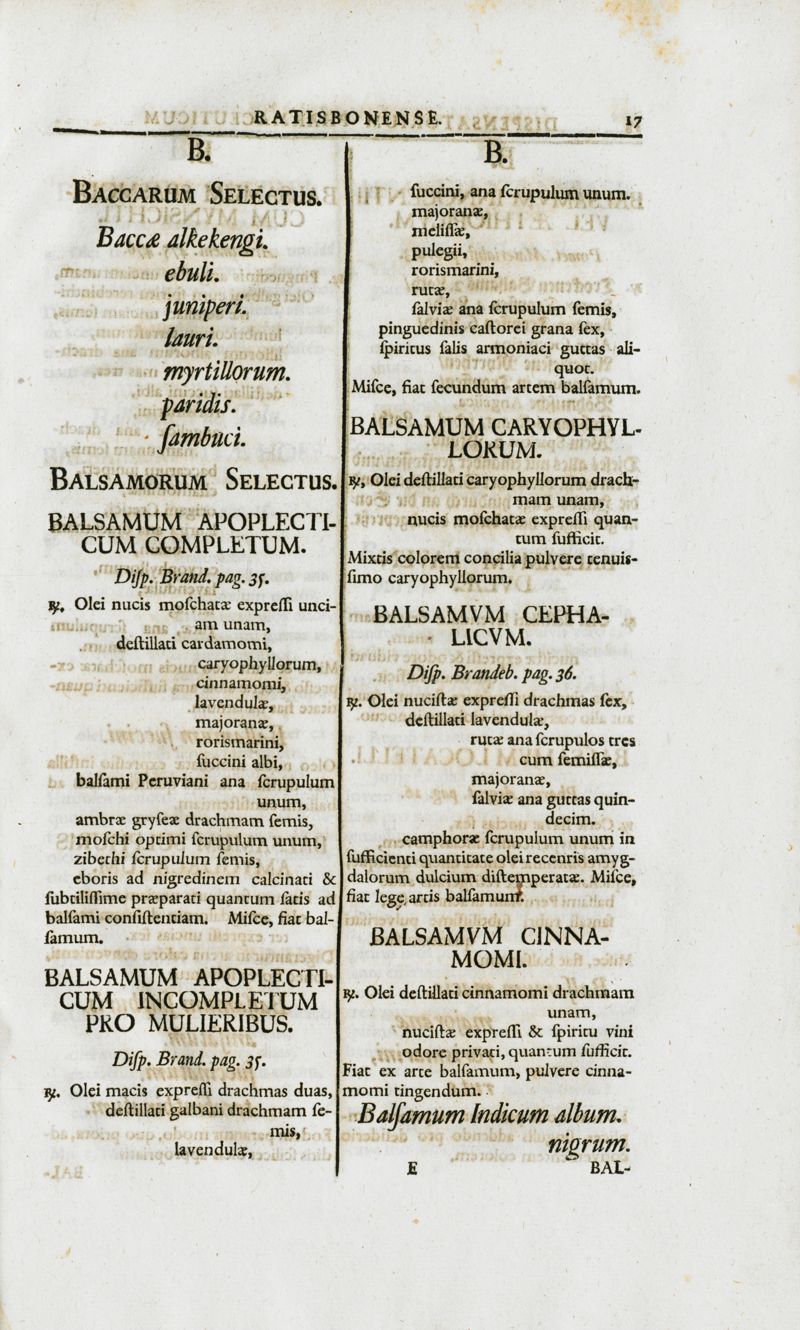 RATISBONENSE. 17
B.
BACCARUM SELECTUS.
Baccæ alkekengi.
ebuli.
juniperi.
lauri.
myrtillorum.
paridis.
ſambuci.
BALSAMORUM SELECTUS.
BALSAMUM APOPLECTI-
CUM COMPLETUM.
Diſp. Brand. pag. 35.
℞. Olei nucis moſchatæ expreſſi unci-
am unam,
deſtillati cardamomi,
caryophyllorum,
cinnamomi,
lavendulæ,
majoranæ,
rorismarini,
ſuccini albi,
balſami Peruviani ana ſcrupulum
unum,
ambræ gryſeæ drachmam ſemis,
moſchi optimi ſcrupulum unum,
zibethi ſcrupulum ſemis,
eboris ad nigredinem calcinati &
ſubtiliſſime præparati quantum ſatis ad
balſami conſiſtentiam. Miſce, fiat bal-
ſamum.
BALSAMUM APOPLECTI-
CUM INCOMPLETUM
PRO MULIERIBUS.
Diſp. Brand. pag. 35.
℞. Olei macis expreſſi drachmas duas,
deſtillati galbani drachmam ſe-
mis,
lavendulæ,
B.
ſuccini, ana ſcrupulum unum.
majoranæ,
meliſſæ,
pulegii,
rorismarini,
rutæ,
ſalviæ ana ſcrupulum ſemis,
pinguedinis caſtorei grana ſex,
ſpiritus ſalis armoniaci guttas ali-
quot.
Miſce, fiat ſecundum artem balſamum.
BALSAMUM CARYOPHYL-
LORUM.
℞. Olei deſtillati caryophyllorum drach-
mam unam,
nucis moſchatæ expreſſi quan-
tum ſufficit.
Mixtis colorem concilia pulvere tenuis-
ſimo caryophyllorum.
BALSAMVM CEPHA-
LICVM.
Diſp. Brandeb. pag. 36.
℞. Olei nuciſtæ expreſſi drachmas ſex,
deſtillati lavendulæ,
rutæ ana ſcrupulos tres
cum ſemiſſæ,
majoranæ,
ſalviæ ana guttas quin-
decim.
camphoræ ſcrupulum unum in
ſufficienti quantitate olei recenris amyg-
dalorum dulcium diſtemperatæ. Miſce,
fiat lege artis balſamum.
BALSAMVM CINNA-
MOMI.
℞. Olei deſtillati cinnamomi drachmam
unam,
nuciſtæ expreſſi & ſpiritu vini
odore privati, quantum ſufficit.
Fiat ex arte balſamum, pulvere cinna-
momi tingendum.
Balſamum Indicum album.
nigrum.
E BAL-